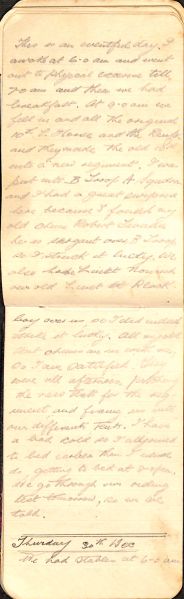 This is an eventful day. I
awoke at 6-0 am and went
out to physical exercise till
7-0 am and then we had
breakfast. At 9-0 am we
fell in and all the original
10th L. Horse and the Reinfs
and they made the old 10th
into a new regiment. I was
put into B Troop A Squadron
and I had a great surprise
here because I found my
old chum Robert
he is sergeant over B Troop
so I struck it lucky. We
also had Lieut
our old Lieut at Black
boy over us so I did indeed
strike it lucky. All my old
tent chums are in with me
so I am satisfied. They
were all afternoon
the men that for the reg
iment and fixing us into
our different Tents. I have
a bad cold so I adjourned
to bed earlier than I usual
do, getting to bed at
We go through our riding
test tomorrow, so we are
told.
Thursday 30th Dec
We had stables at 6-0 am